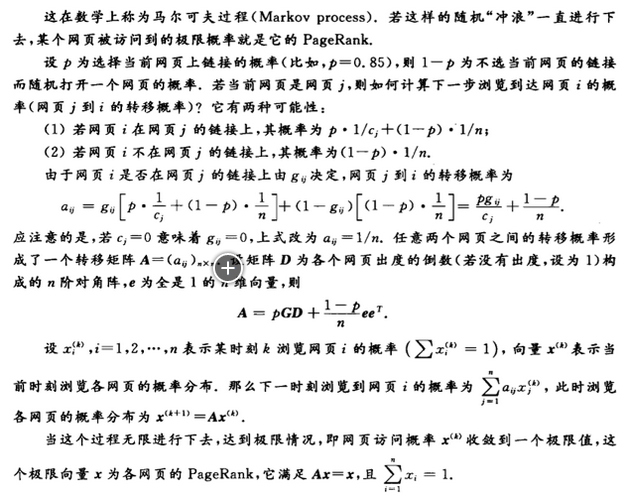 这在数学上称为马尔可夫过程(Markov process). 若这样的随机“冲浪”一直进行下
去,某个网页被访问到的极限概率就是它的 PageRank.
设 p 为选择当前网页上链接的概率(比如,p=0.85),则 1-p 为不选当前网页的链接
而随机打开一个网页的概率. 若当前网页是网页 j,则如何计算下一步浏览到达网页 i 的概
率(网页 j 到 i 的转移概率)? 它有两种可能性:
(1) 若网页 i 在网页 j 的链接上,其概率为 p·1/c_j+(1-p)·1/n;
(2) 若网页 i 不在网页 j 的链接上,其概率为(1-p)·1/n.
由于网页 i 是否在网页 j 的链接上由 g_{ij} 决定,网页 j 到 i 的转移概率为
a_{ij} = g_{ij}[p·1/c_j+(1-p)·1/n]+(1-g_{ij})[(1-p)·1/n]= pg_{ij}/c_j + (1-p)/n.
应注意的是,若 c_j=0 意味着 g_{ij}=0,上式改为 a_{ij}=1/n. 任意两个网页之间的转移概率形
成了一个转移矩阵 A=(a_{ij})_{n× 矩阵 D 为各个网页出度的倒数(若没有出度,设为 1)构
成的 n 阶对角阵,e 为全是 1 的 维向量,则
A = pGD + (1-p)/n ee^T.
设 x_i^{(k)},i=1,2,⋯,n 表示某时刻 k 浏览网页 i 的概率 (∑x_i^{(k)} = 1),向量 x^{(k)} 表示当
前时刻浏览各网页的概率分布. 那么下一时刻浏览到网页 i 的概率为 ∑_{j=1}^{n} a_{ij}x_j^{(k)}, 此时浏览
各网页的概率分布为 x^{(k+1)}=Ax^{(k)}.
当这个过程无限进行下去,达到极限情况,即网页访问概率 x^{(k)} 收敛到一个极限值,这
个极限向量 x 为各网页的 PageRank,它满足 Ax=x,且 ∑_{i=1}^{n} x_i = 1.